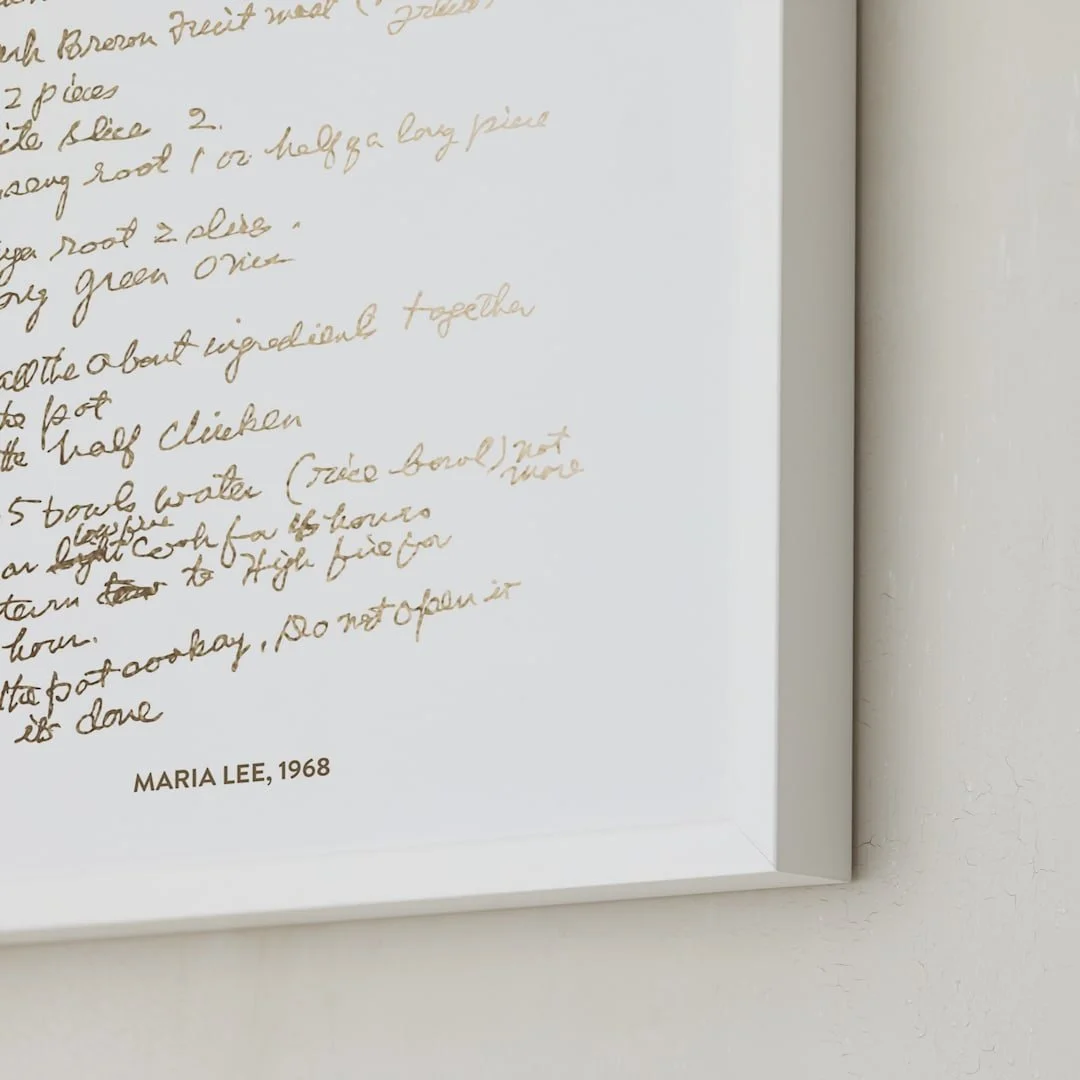 Brown Fruit meat
2 pieces
slice 2.
root 1 or half of a long piece
root 2 slies.
green onien
all the about ingredients together
pot
the half chicken
5 bowls water (rice bowl) not more
low fire
cook for hours
turn to High fire for
hour.
the pot cookay, Do not open it
its done
MARIA LEE, 1968